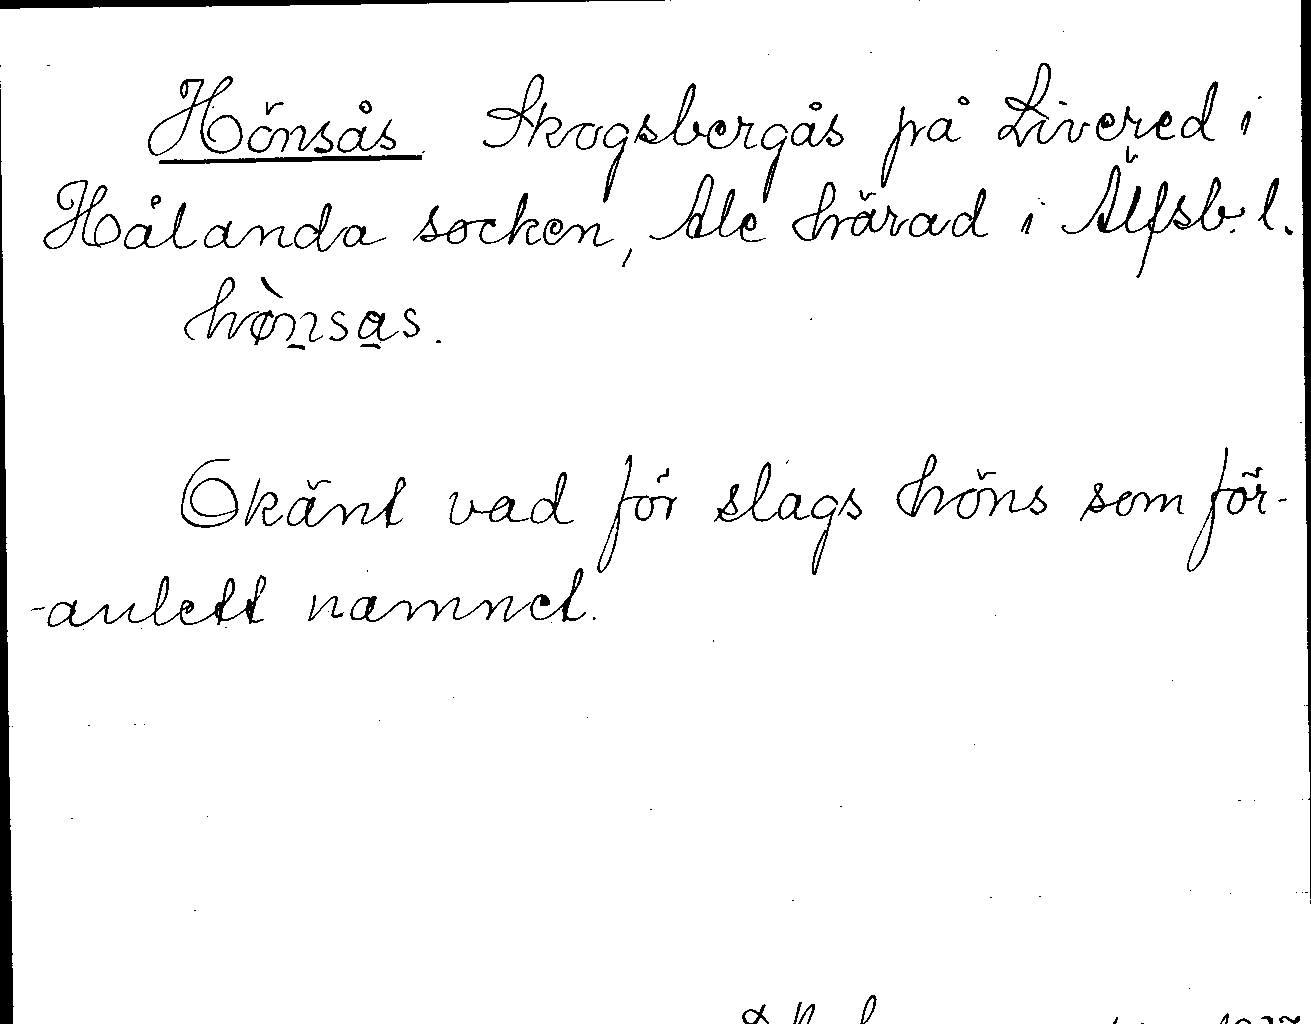 Hönsås. Skogsbergås på Livered i
Hålanda socken, Ale härad i Älfsb. l.
hø̀n̲sa̲s.
Okänt vad för slags höns som för-
-anlett namnet.